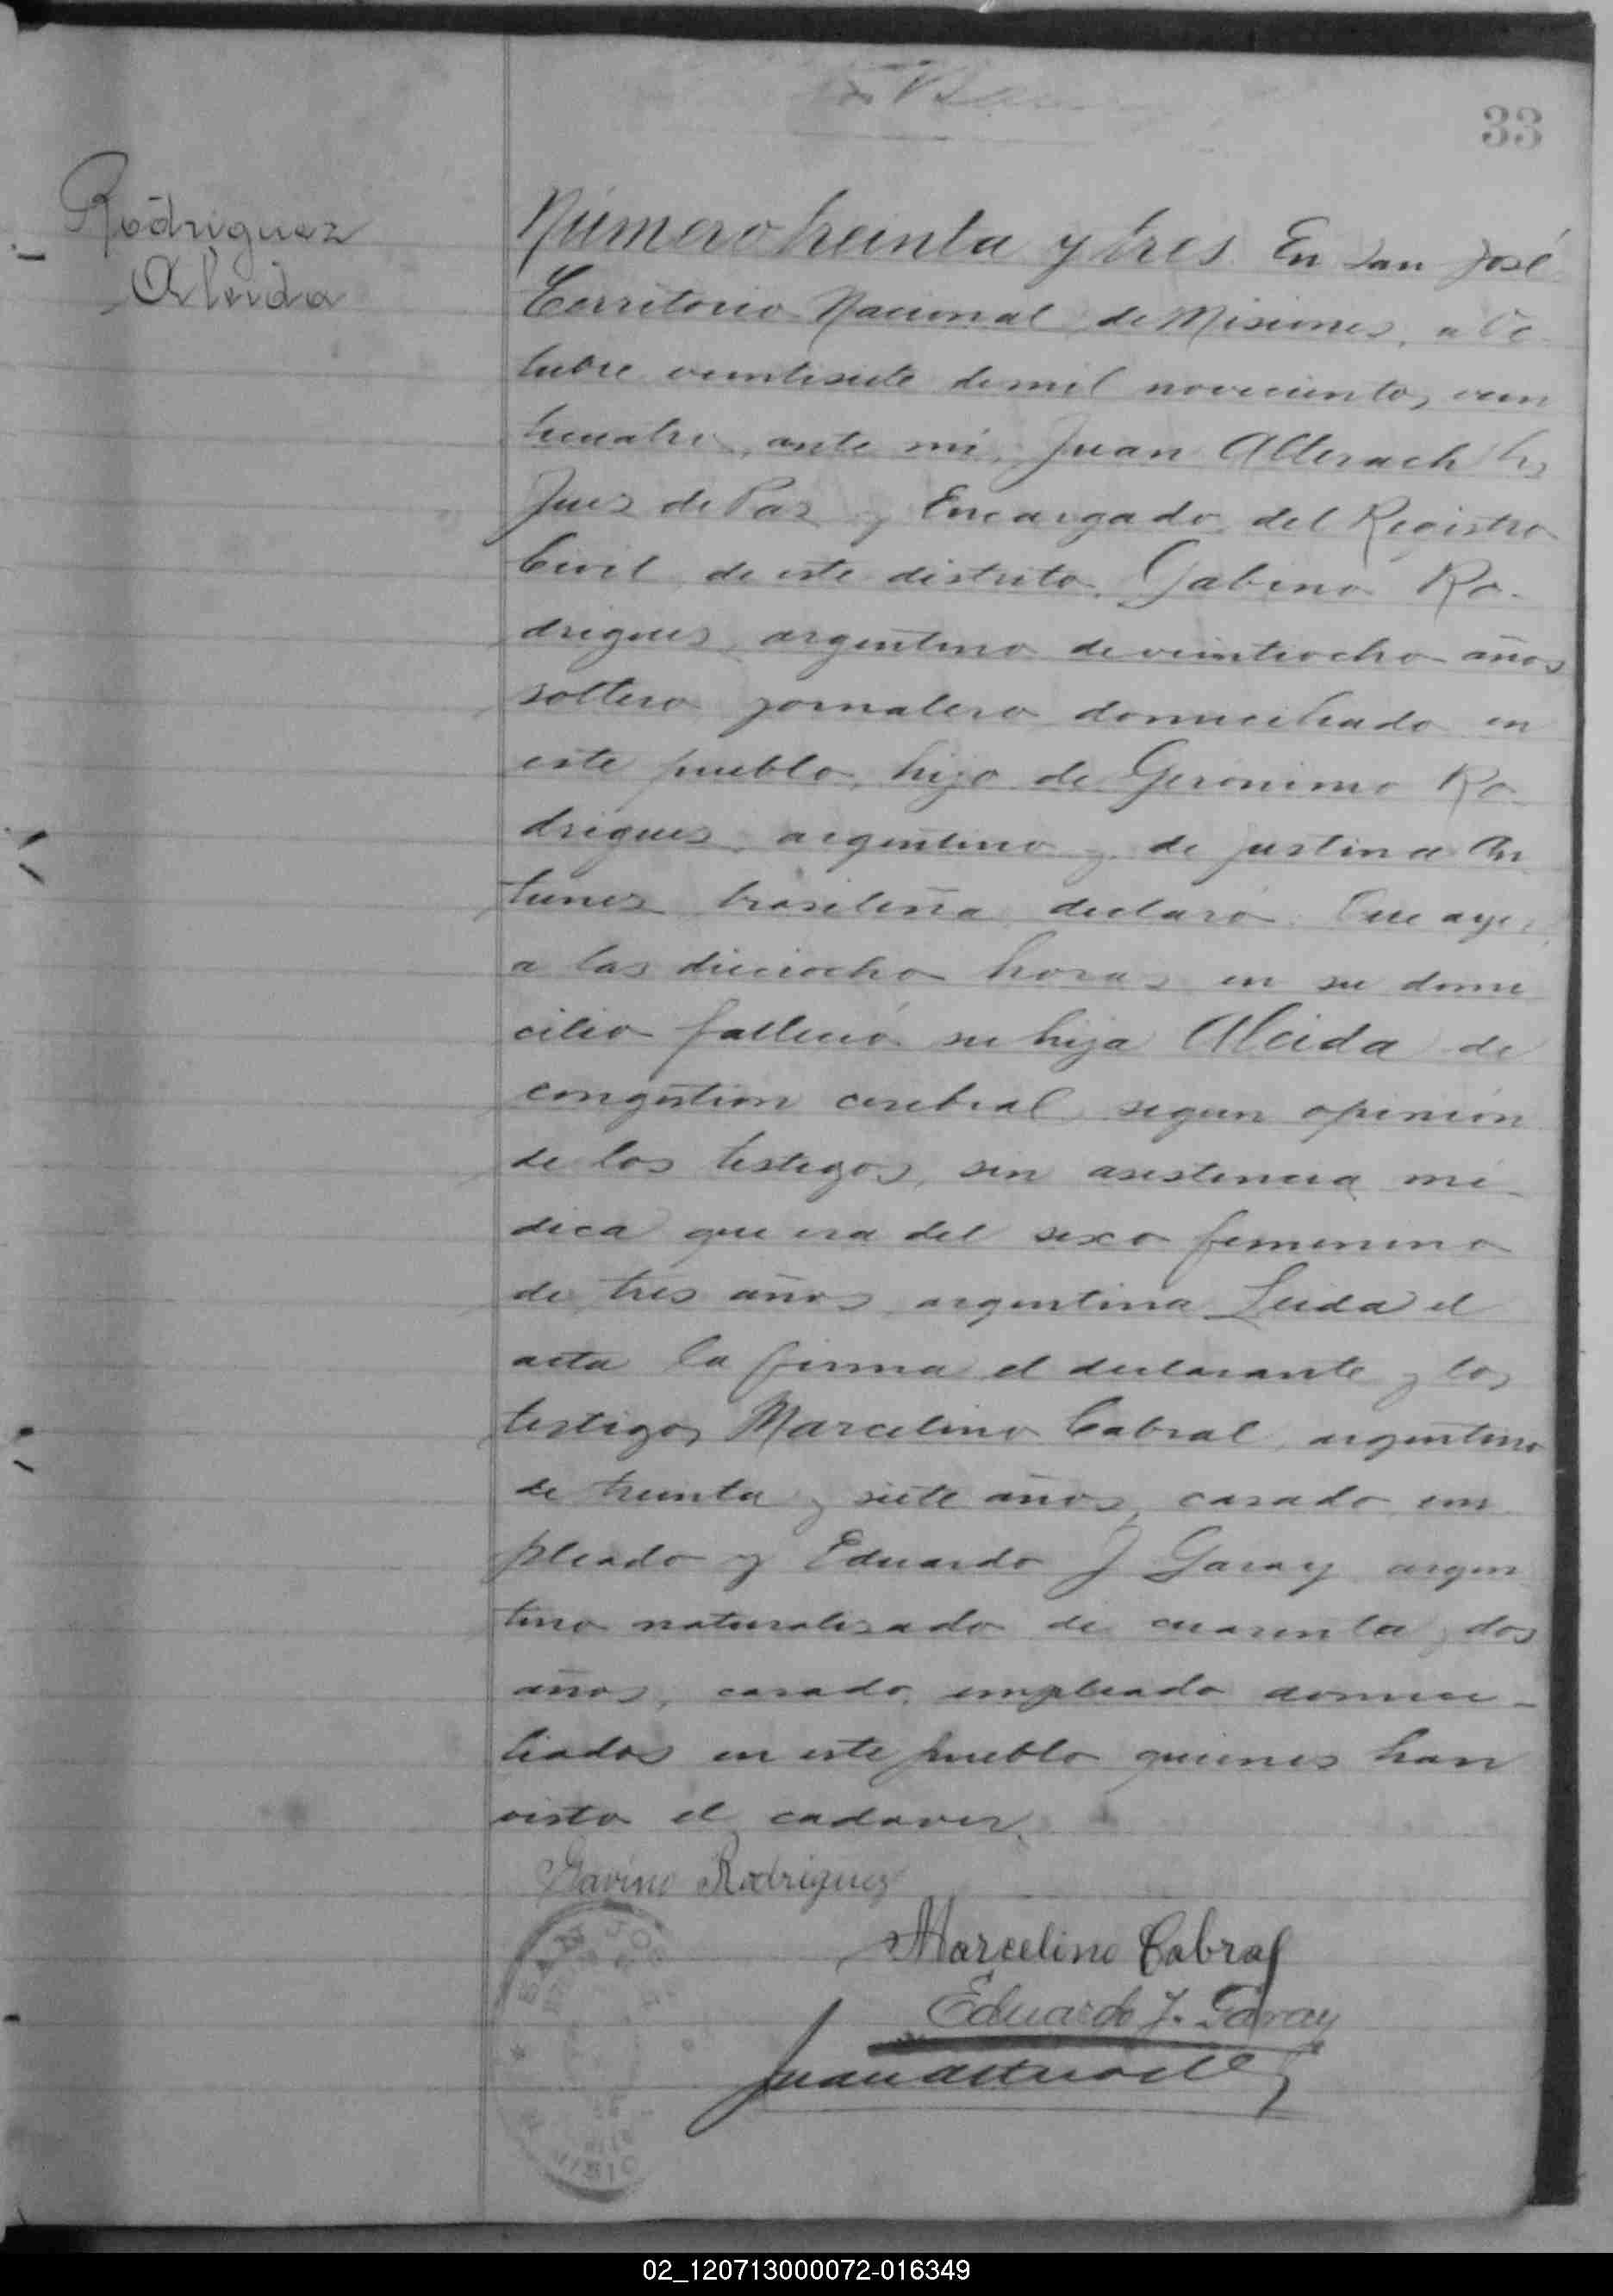 33
Rodriguez
Aleida
Número treinta y tres. En San José
Territorio Nacional de Misiones, a Oc-
tubre veintisiete de mil novecientos vein
ticuatro, ante mi, Juan Alterach (h)
Juez de Paz y Encargado del Registro
Civil de este distrito, Gabino Ro-
drigues, argentino de veintiocho años
soltero jornalero domiciliado en
este pueblo, hijo de Geronimo Ro-
drigues, argentino y de Justina An
tunez brasileña declaró: Que ayer,
a las dieciocho horas en su domi
cilio falleció su hija Aleida de
congestion cerebral, segun opinión
de los testigos, sin asistencia mé-
dica que era del sexo femenino
de tres años argentina Leida el
acta la firma el declarante y los
testigos Marcelino Cabral, argentino
de treinta y siete años, casado, em
pleado y Eduardo J Garay argen
tino naturalizado de cuarenta y dos
años, casado, empleado domici-
liados en este pueblo quienes han
visto el cadaver.
Gavino Rodriguez
Marcelino Cabral
Eduardo J. Garay
Juan Alterach
02_120713000072-016349